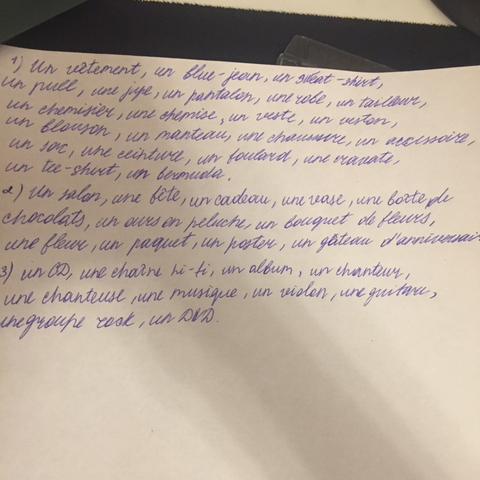 1) Un vêtement, un blue-jean, un sweat-shirt,
un pull, une jupe, un pantalon, une robe, un tailleur,
un chemisier, une chemise, un veste, un veston,
un blouson, un manteau, une chaussure, un accessoire,
un sac, une ceinture, un foulard, une cravate,
un tee-shirt, un bermuda.
2) Un salon, une fête, un cadeau, une vase, une boîte de
chocolats, un ours en peluche, un bouquet de fleurs,
une fleur, un paquet, un poster, un gâteau d'anniversair
3) un CD, une chaîne hi-fi, un album, un chanteur,
une chanteuse, une musique, un violon, une guitare,
une groupe rock, un DVD.